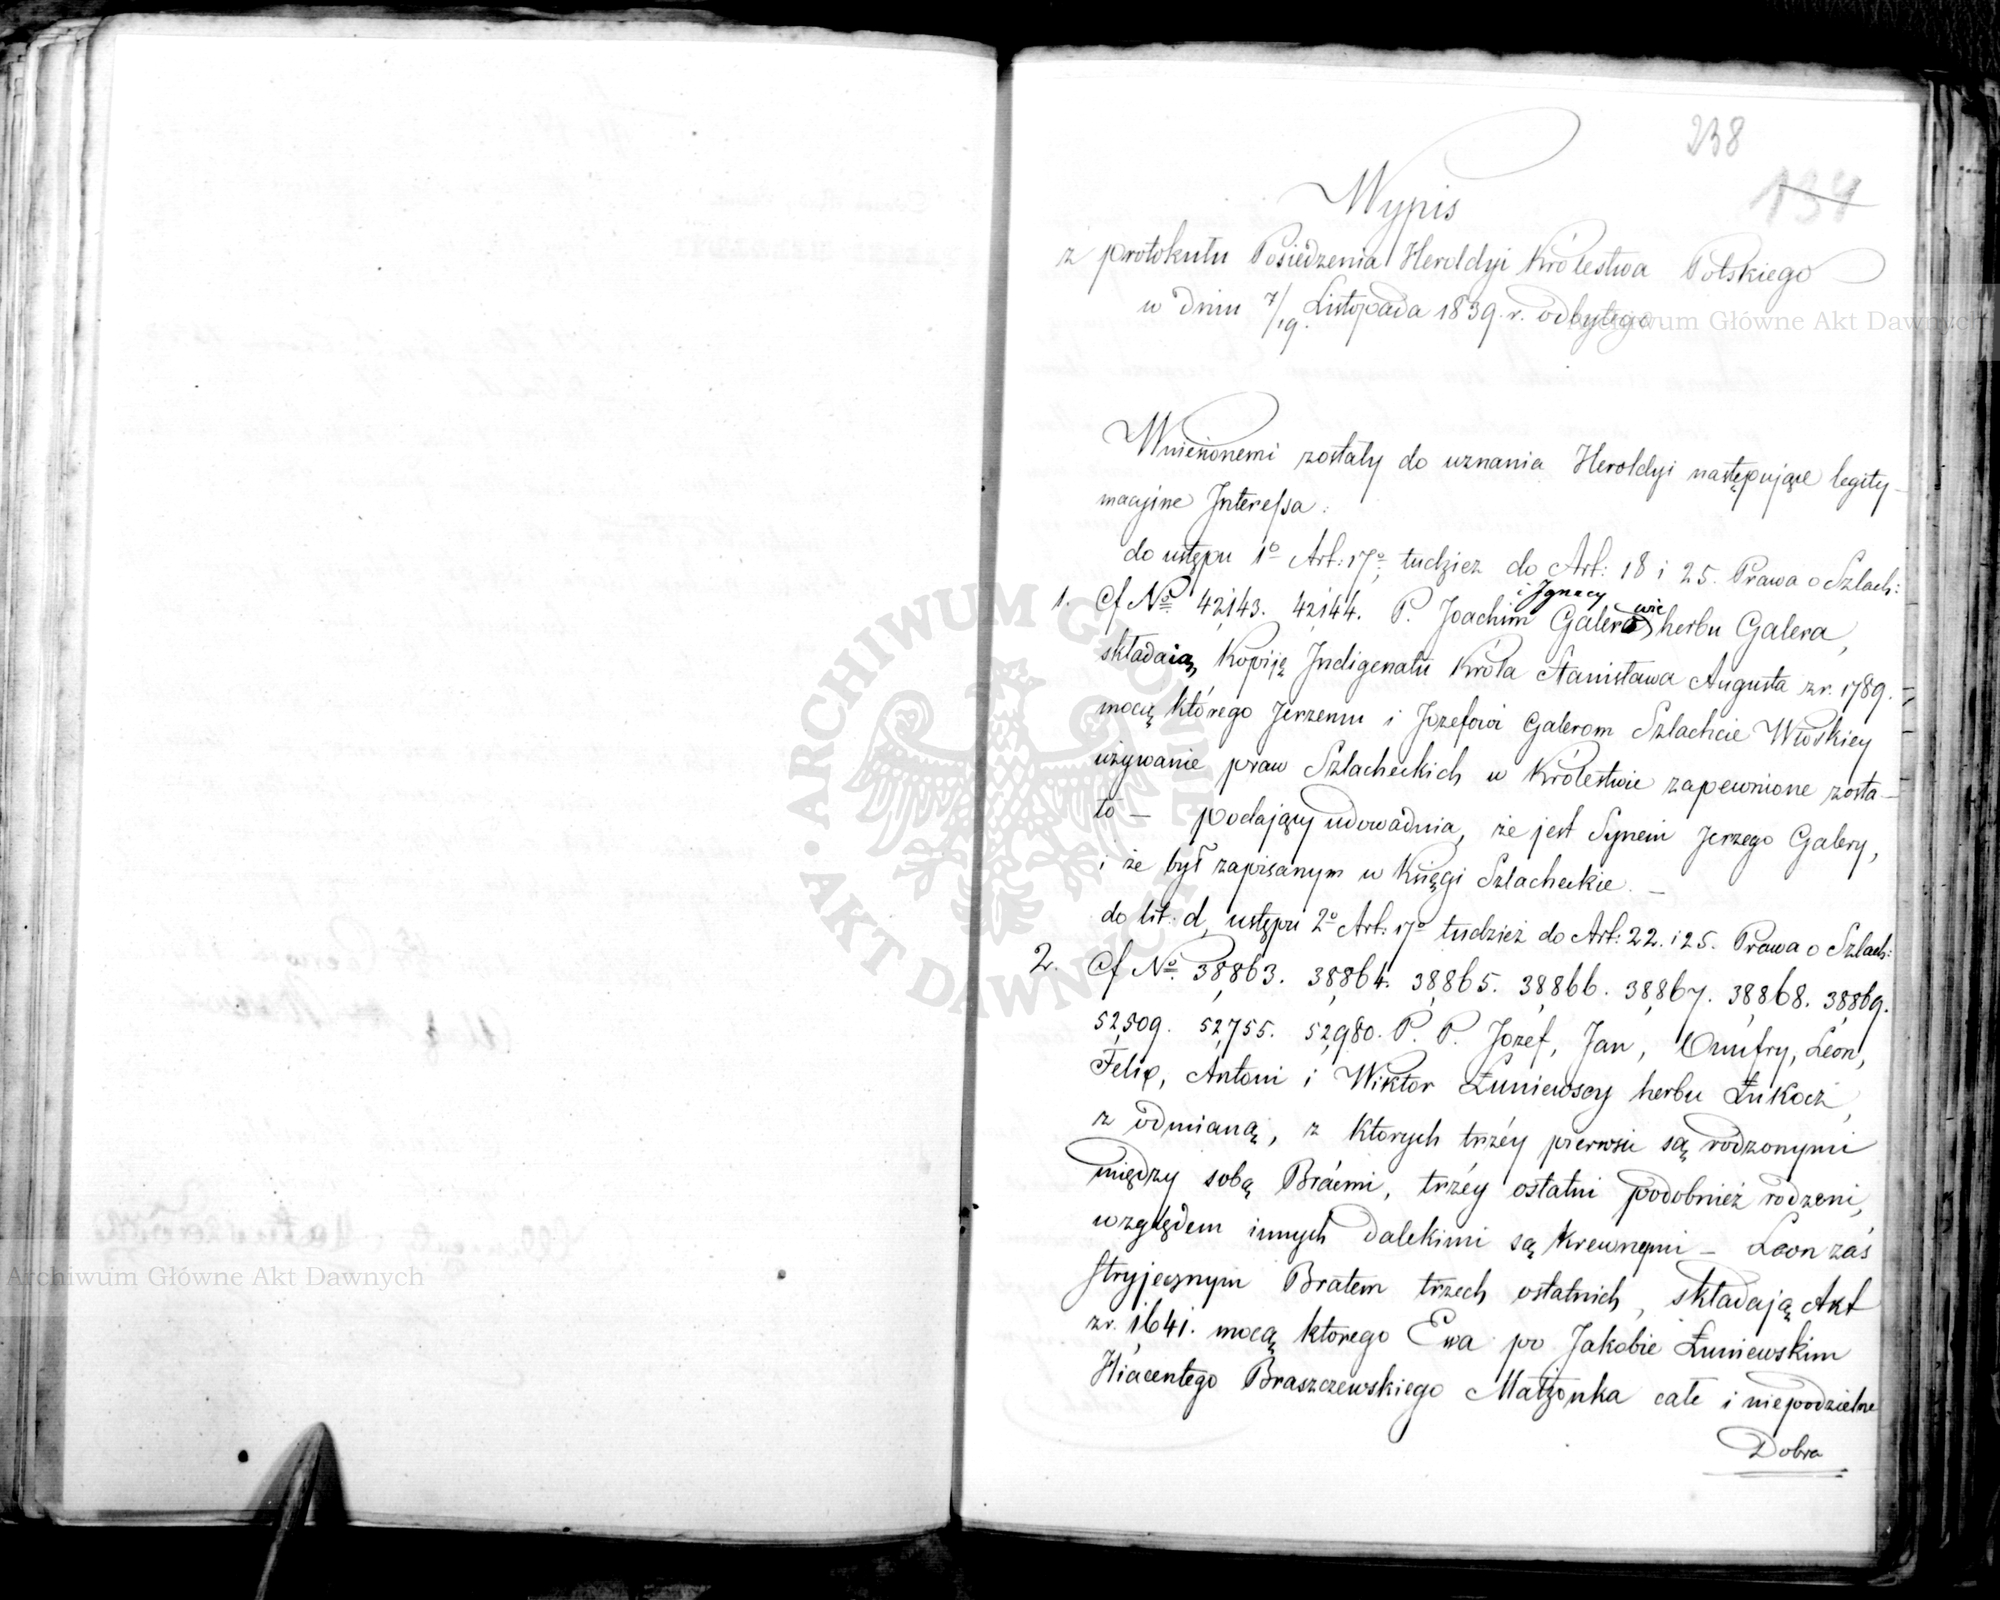 238
134
Wypis
z protokułu Posiedzenia Heroldyi Królestwa Polskiego
w dniu 7/19. Listopada 1839. r. odbytego
Wniesionemi zostały do uznania Heroldyi następujące legity-
macyine Interessa:
do ustępu 1º Art: 17º, tudzież do Art: 18 i 25. Prawa o Szlach:
1. Nº 42,143. 42,144. P. Joachim i Ignacy Galerowie herbu Galera,
składaią, Kopiję Indigenatu Króla Stanisława Augusta z r. 1789.
mocą którego Jerzemu i Jozefowi Galerom Szlachcie Włoskiey
używanie praw Szlacheckich w Królestwie zapewnione zosta-
ło — podający udowadnia, że jest Synem Jerzego Galery,
i że był zapisanym w Księgi Szlacheckie. —
do lit: d, ustępu 2º Art: 17º tudzież do Art: 22. i 25. Prawa o Szlach:
2. Nº 38,863. 38,864. 38,865. 38,866. 38,867. 38,868. 38,869.
52,509. 52,755. 52,980. P. P. Jozef, Jan, Onufry, Leon,
Felix, Antoni i Wiktor Łuniewscy herbu Łukocz,
z odmianą, z ktorych trzéy pierwsi są rodzonymi
między sobą Braćmi, trzéy ostatni podobnież rodzeni,
względem innych dalekimi są krewnymi — Leon zaś
stryjecznym Bratem trzech ostatnich, składają Akt
z r. 1641. mocą ktorego Ewa po Jakobie Łuniewskim
Hiacentego Braszczewskiego Małżonka całe i niepodzielne
Dobra
Archiwum Główne Akt Dawnych
Archiwum Główne Akt Dawnych
ARCHIWUM GŁÓWNE AKT DAWNYCH